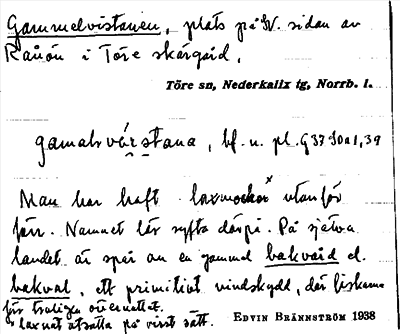 Gammelvistanen, plats på SV. sidan av
Rånön i Töre skärgård.
Töre sn, Nederkalix tg, Norrb. l.
gamalvärstana, bf. n. pl.
Man har haft laxmockor x utanför
förr. Namnet lär syfta därpå. På själva
landet är spår av en gammal bakvård el.
bakval, ett primitivt vindskydd, där fiskarna
för troligen övernattat.
x laxnät utsatta på visst sätt.
EDVIN BRÄNNSTRÖM 1938